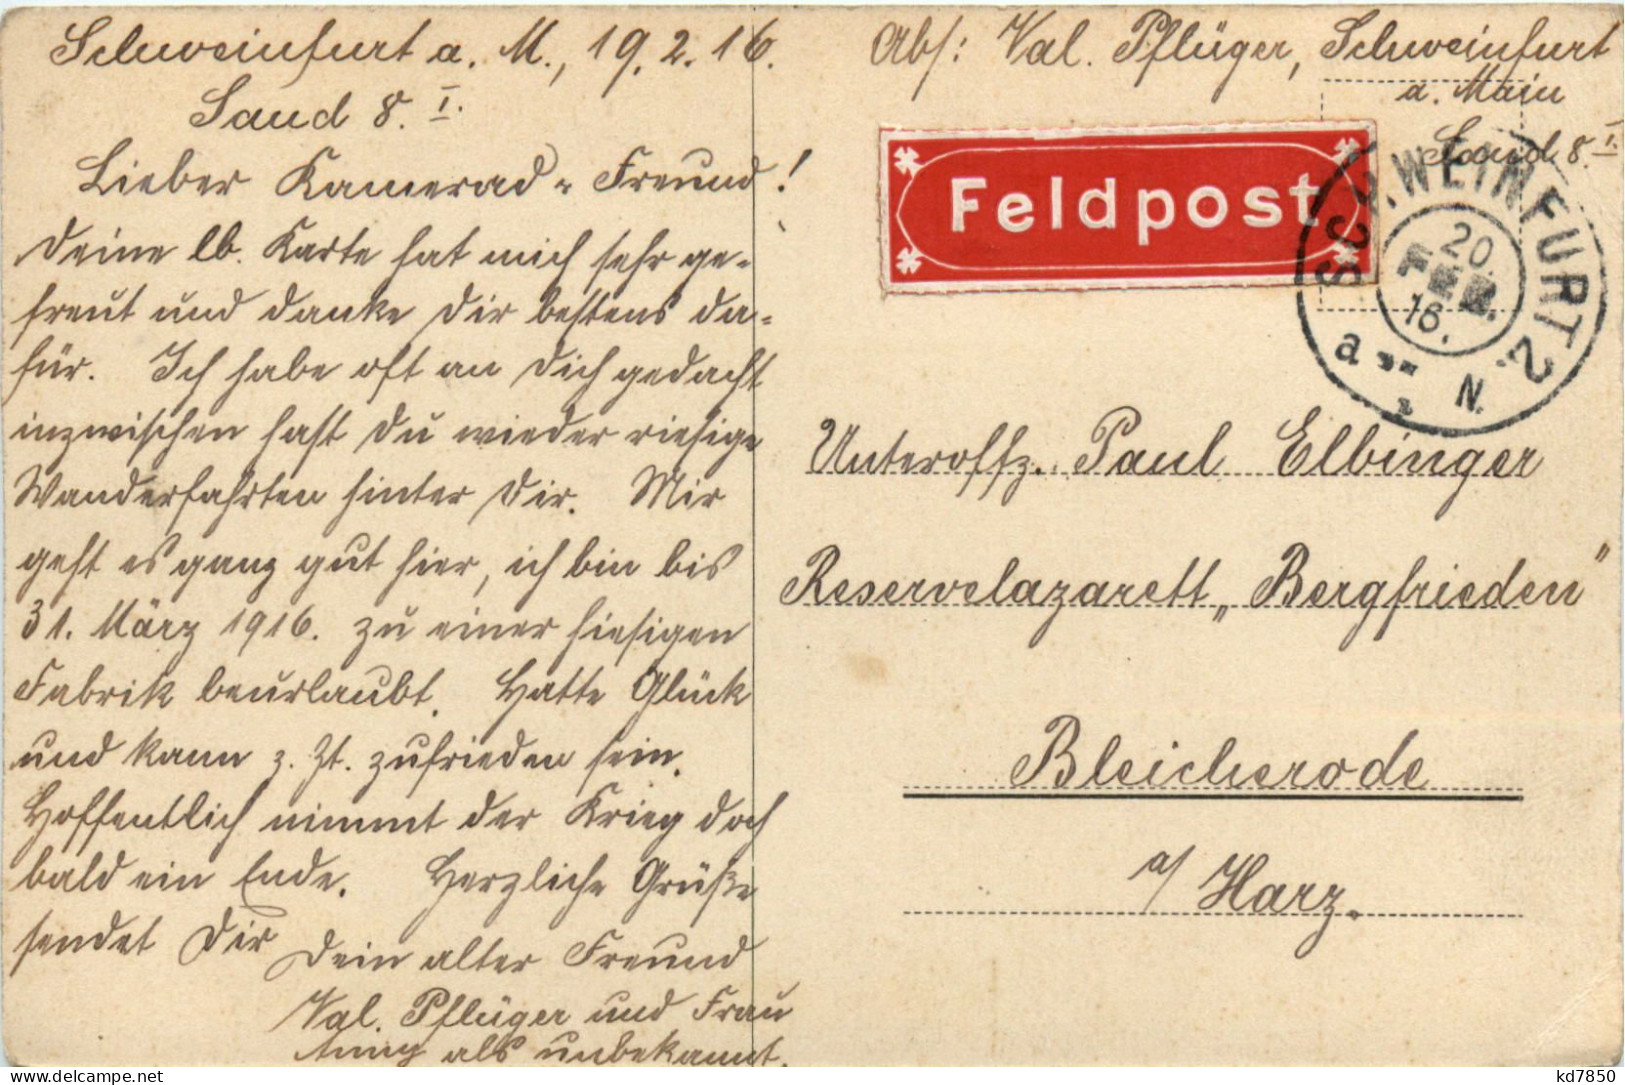 Schweinfurt a. M., 19.2.16.
Sand 8. I.
Lieber Kamerad = Freund!
Deine lb. Karte hat mich sehr ge-
freut und danke Dir bestens da-
für. Ich habe oft an Dich gedacht
inzwischen hast Du wieder riesige
Wanderfahrten hinter Dir. Mir
geht es ganz gut hier, ich bin bis
31. März 1916. zu einer hiesigen
Fabrik beurlaubt. Hatte Glück
und kann z. Zt. zufrieden sein.
Hoffentlich nimmt der Krieg doch
bald ein Ende. Herzliche Grüße
sendet Dir
Dein alter Freund
Val. Pflüger und Frau
als unbekannt.
Abs: Val. Pflüger, Schweinfurt
a. Main
Sand 8. I.
Feldpost
SCHWEINFURT 2.
20.
16.
a N.
Unteroffz. Paul Elbinger
Reservelazarett „Bergfrieden"
Bleicherode
a/ Harz.
kd7850